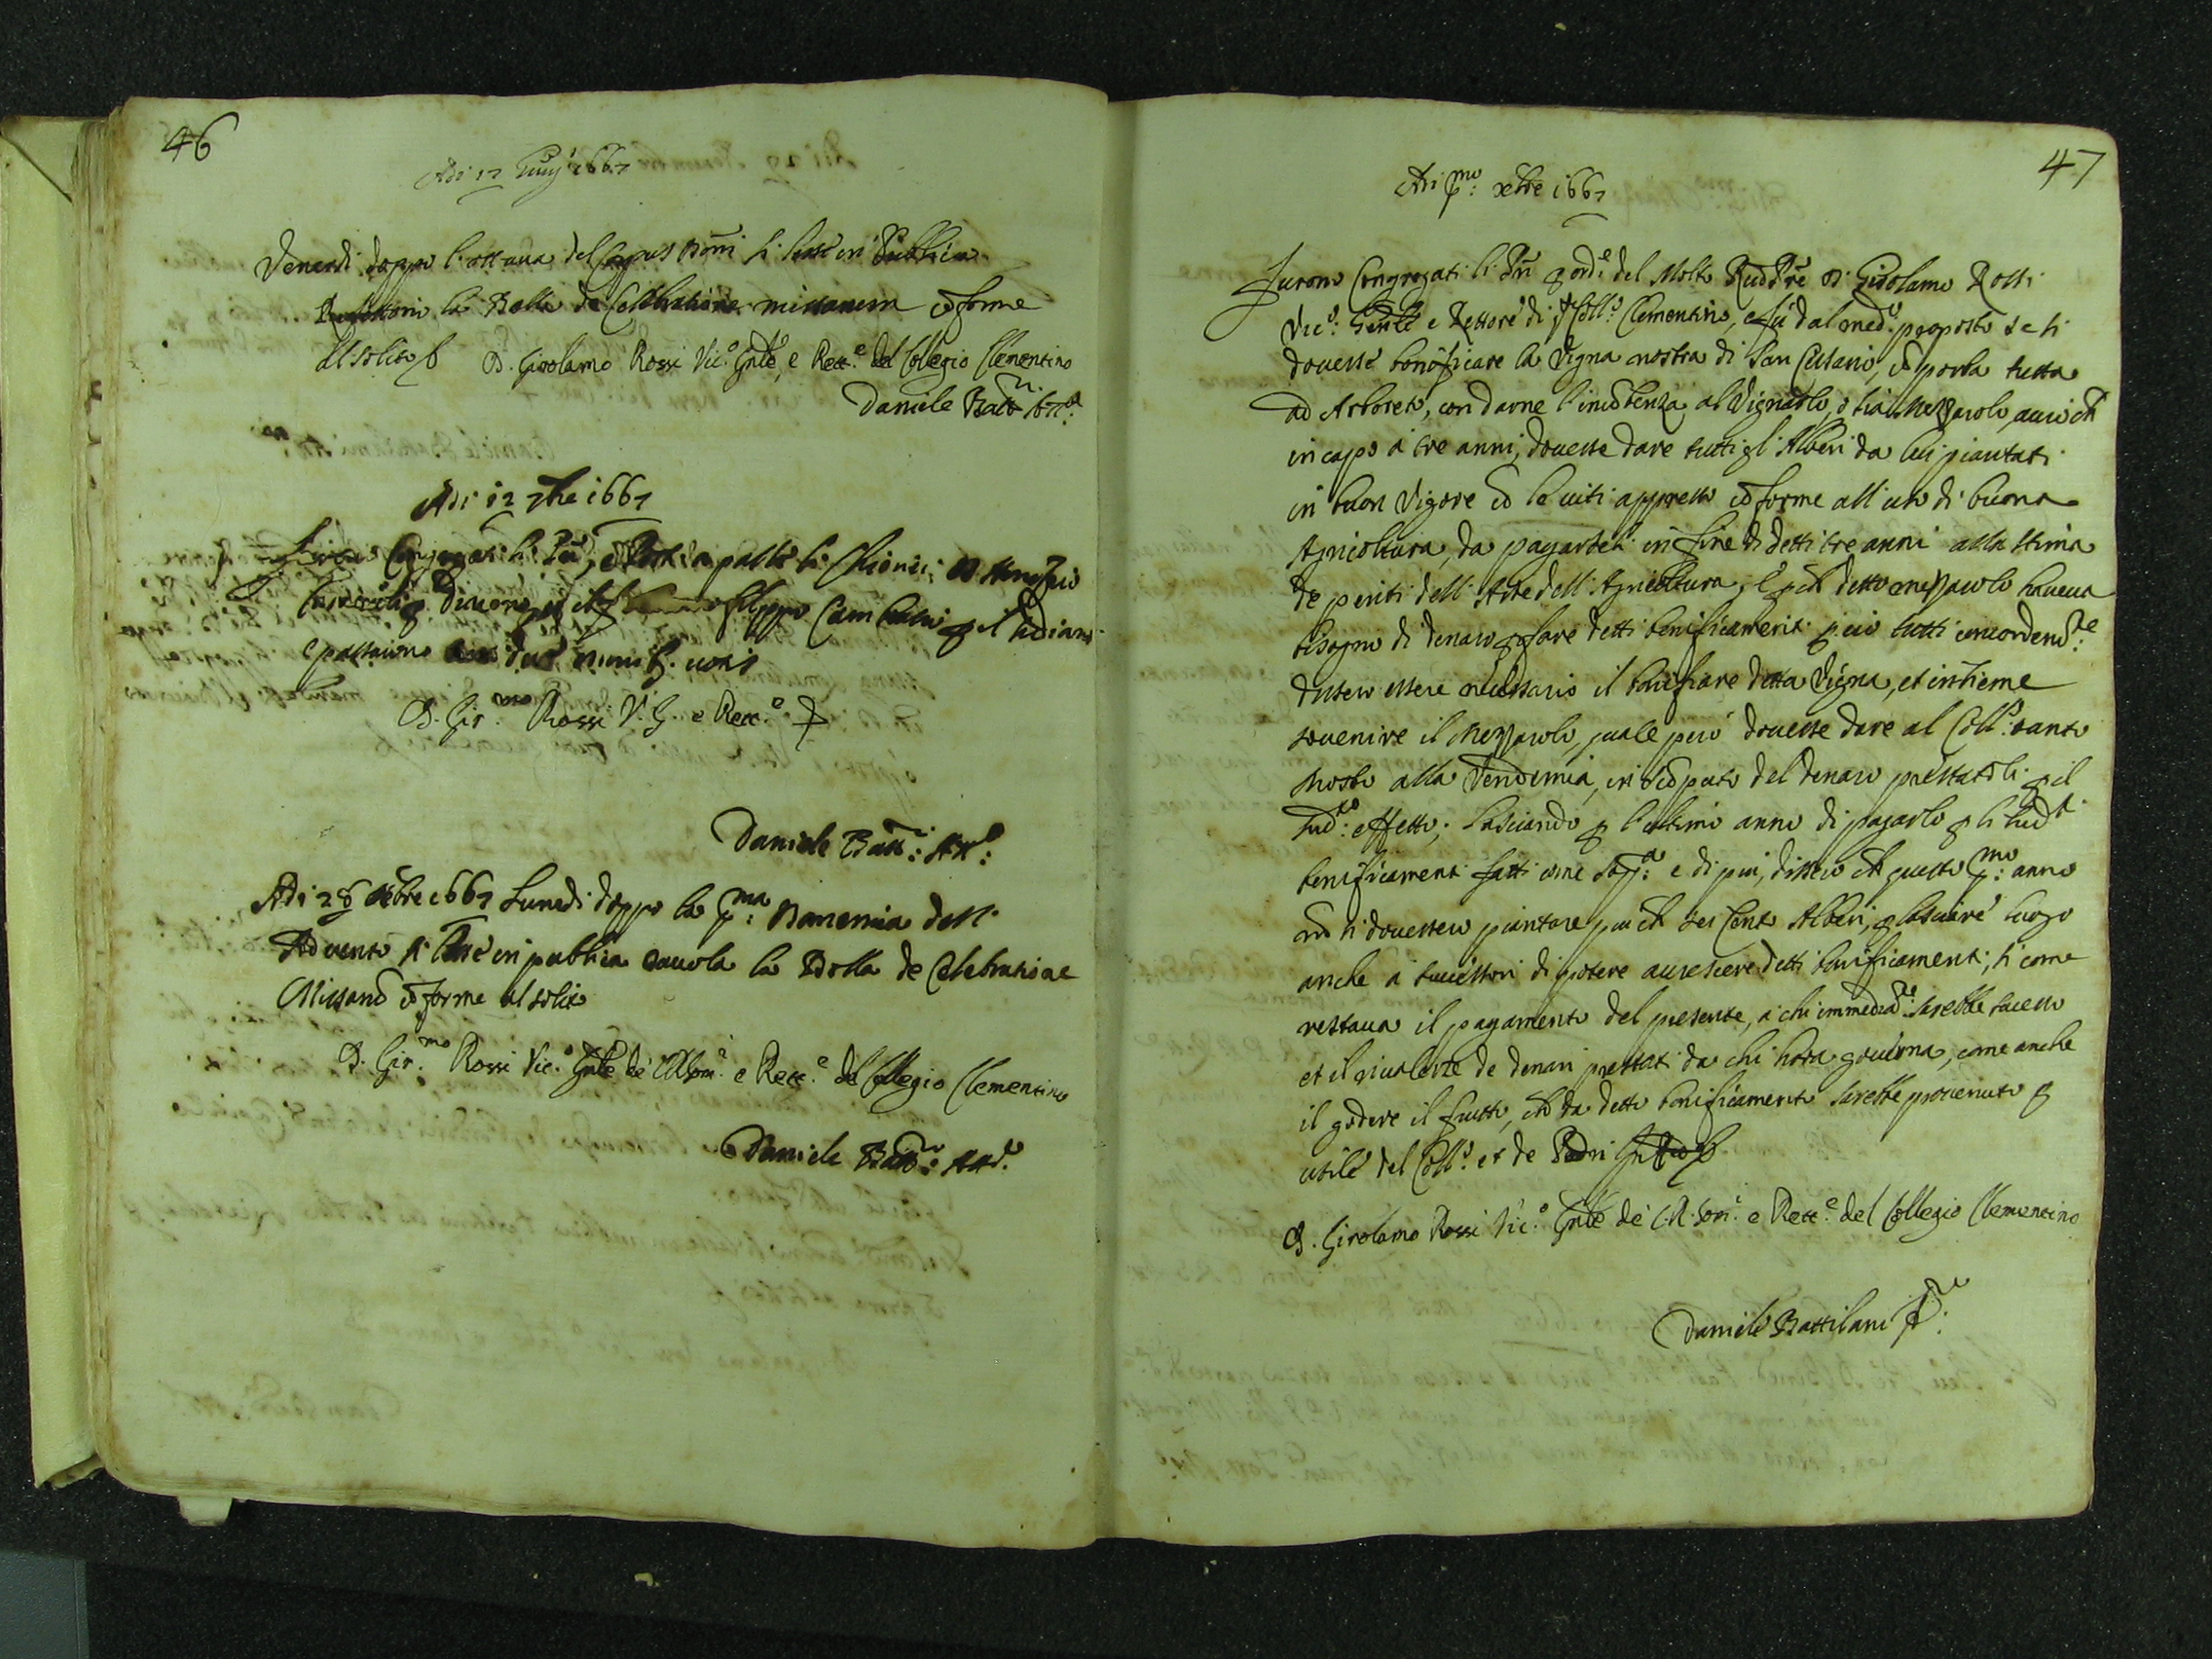 46
Adi 17 Giug. 1667
Venerdi doppo l'ottava del Corpus Dni si lesse in Publico
Refettorio la Bolla de Celebratione missarum cõforme
al solito D. Girolamo Rossi Vic.º Gnle, e Rett.e del Collegio Clementino
Daniele Batt.ni Att.º
Adi 12 7bre 1667
Furono Congregati li Pri, e
Filippo per il
e passarono
D. Gir.mo Rossi V. G. e Rett.e
Daniele Batt.ni: Att.º:
Adi 28 9bre 1667 Lunedi doppo la p.ma Domenica dell'
Advento si lesse in publica tavola la Bolla de Celebratione
Missarũ cõforme al solito
D. Gir.mo Rossi Vic.º Gnle de C.R.Som. e Rett.e del Collegio Clementino
Daniele Batt.ni: Att.º
47
Adi p.mo: xbre 1667
Furono Congregati li Pri p ord.e del Molto Rũdo Pre D. Girolamo Rossi
Vic.º: Gen̄le e Rettore di qto Coll.º Clementino, e fù dal med.º proposto se si
dovesse bonificare la Vigna nostra di San Cesario, cõ porla tutta
ad Arboreto, con darne l'incõbenza al Vignarolo, ò sia Mezzarolo, acciò ch
in capo à tre anni, dovesse dare tutti gl'Alberi da lui piantati
in buon Vigore cõ le viti appresso cõforme all'uso di buona
Agricoltura, da pagarseli in fine di detti tre anni alla stima
de periti dell'Arte dell'Agricoltura, e pch detto mezzarolo haveva
bisogno di denaro p fare detti bonificamenti pciò tutti concordem.te:
dissero essere necessario il bonificare detta Vigna, et insieme
sovenire il Mezzarolo, quale però dovesse dare al Coll.º tanto
mosto alla Vendemia, in scõputo del denaro prestatoli p il
sud.to: effetto; lasciando p l'ultimo anno di pagarlo p li sud.ti
bonificamenti fatti come sop.a: e di più, dissero ch questo p.mo: anno
nõ si dovessero piantare più ch sei Cento Alberi, p lasciare luogo
anche à successori di potere accrescere detti bonificamenti, si come
restava il pagamento del presente, à chi immediat.e sarebbe sucesso
et il rivalerse de denari prestati da chi hora governa, come anche
il godere il frutto, ch da detto bonificamento sarebbe provenuto p
utile del Coll.º et de Padri
D. Girolamo Rossi Vic.º Gnle de C.R.Som. e Rett.e del Collegio Clementino
Daniele Battilani